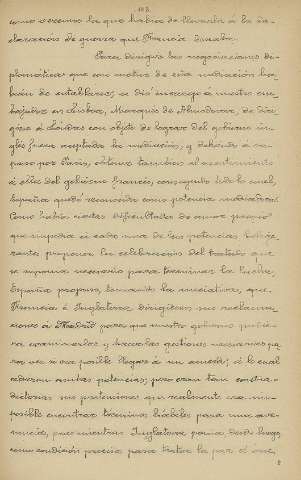 103.
como veremos lo que había de llevarlo á la de-
claración de guerra que Francia
Para dirigir las negociaciones di-
plomáticas que con motivo de esta mediación ha-
bían de entablarse, se dió encargo á nuestro em-
bajador en Lisboa, Marqués de Almodóvar, de diri-
girse á Londres con objeto de lograr del gobierno in-
glés fuese aceptada la mediación, y debiendo á su
paso por París, obtener también el asentimiento
á ella del gobierno francés, conseguido todo lo cual,
España quedó reconocida como potencia mediadora.
Como había ciertas dificultades de amor propio
que impedía á cada una de las potencias belige-
rantes proponer la celebración del tratado que
se suponía necesario para terminar la lucha,
España propuso, tomando la iniciativa, que
Francia é Inglaterra dirigiesen sus reclama-
ciones á Madrid para que nuestro gobierno pudie-
ra examinarlas y hacer las gestiones necesarias pa-
ra ver si era posible llegar á un acuerdo; á lo cual
ambas potencias; pero eran tan contra-
dictorias sus pretensiones que realmente era im-
posible encontrar términos hábiles para una ave-
nencia, pues mientras Inglaterra ponía, desde luego,
como condición precisa para tratar la paz el que,